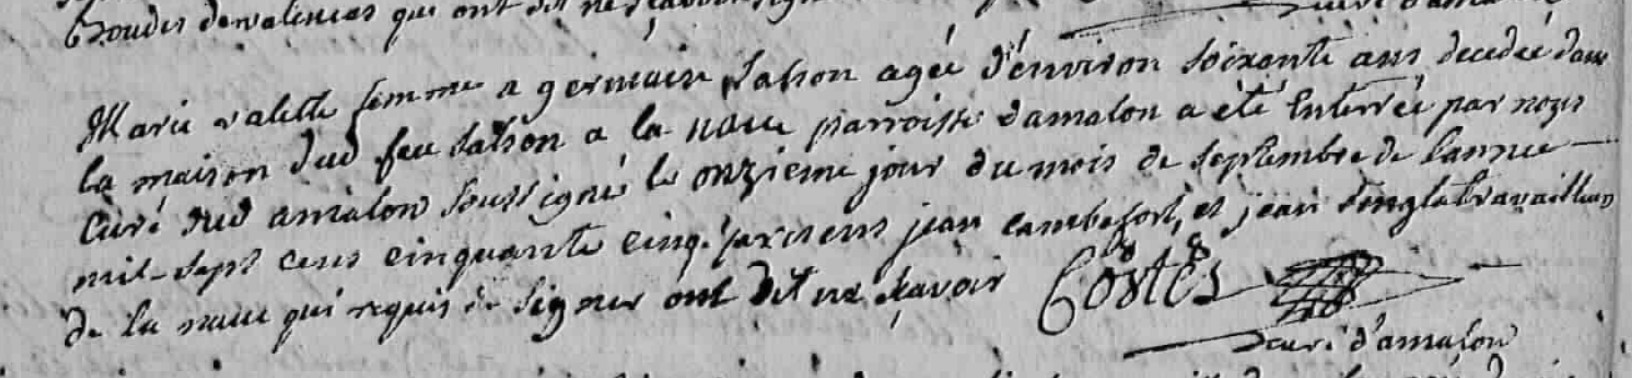 qui ont dit ne sçavoir
Marie valette femme a germain Salson agée d'environ soixante ans decedée dans
la maison dud feu Salson a la naue parroisse damalon a été Enterrée par nous
Curé dud amalon soussigné le onzieme jour du mois de septembre de lannee
mil-sept cens cinquante cinq. presens jean cambefort, et jean travailleurs
de la naue qui requis de signer ont dit ne sçavoir Costes
curé d'amalon